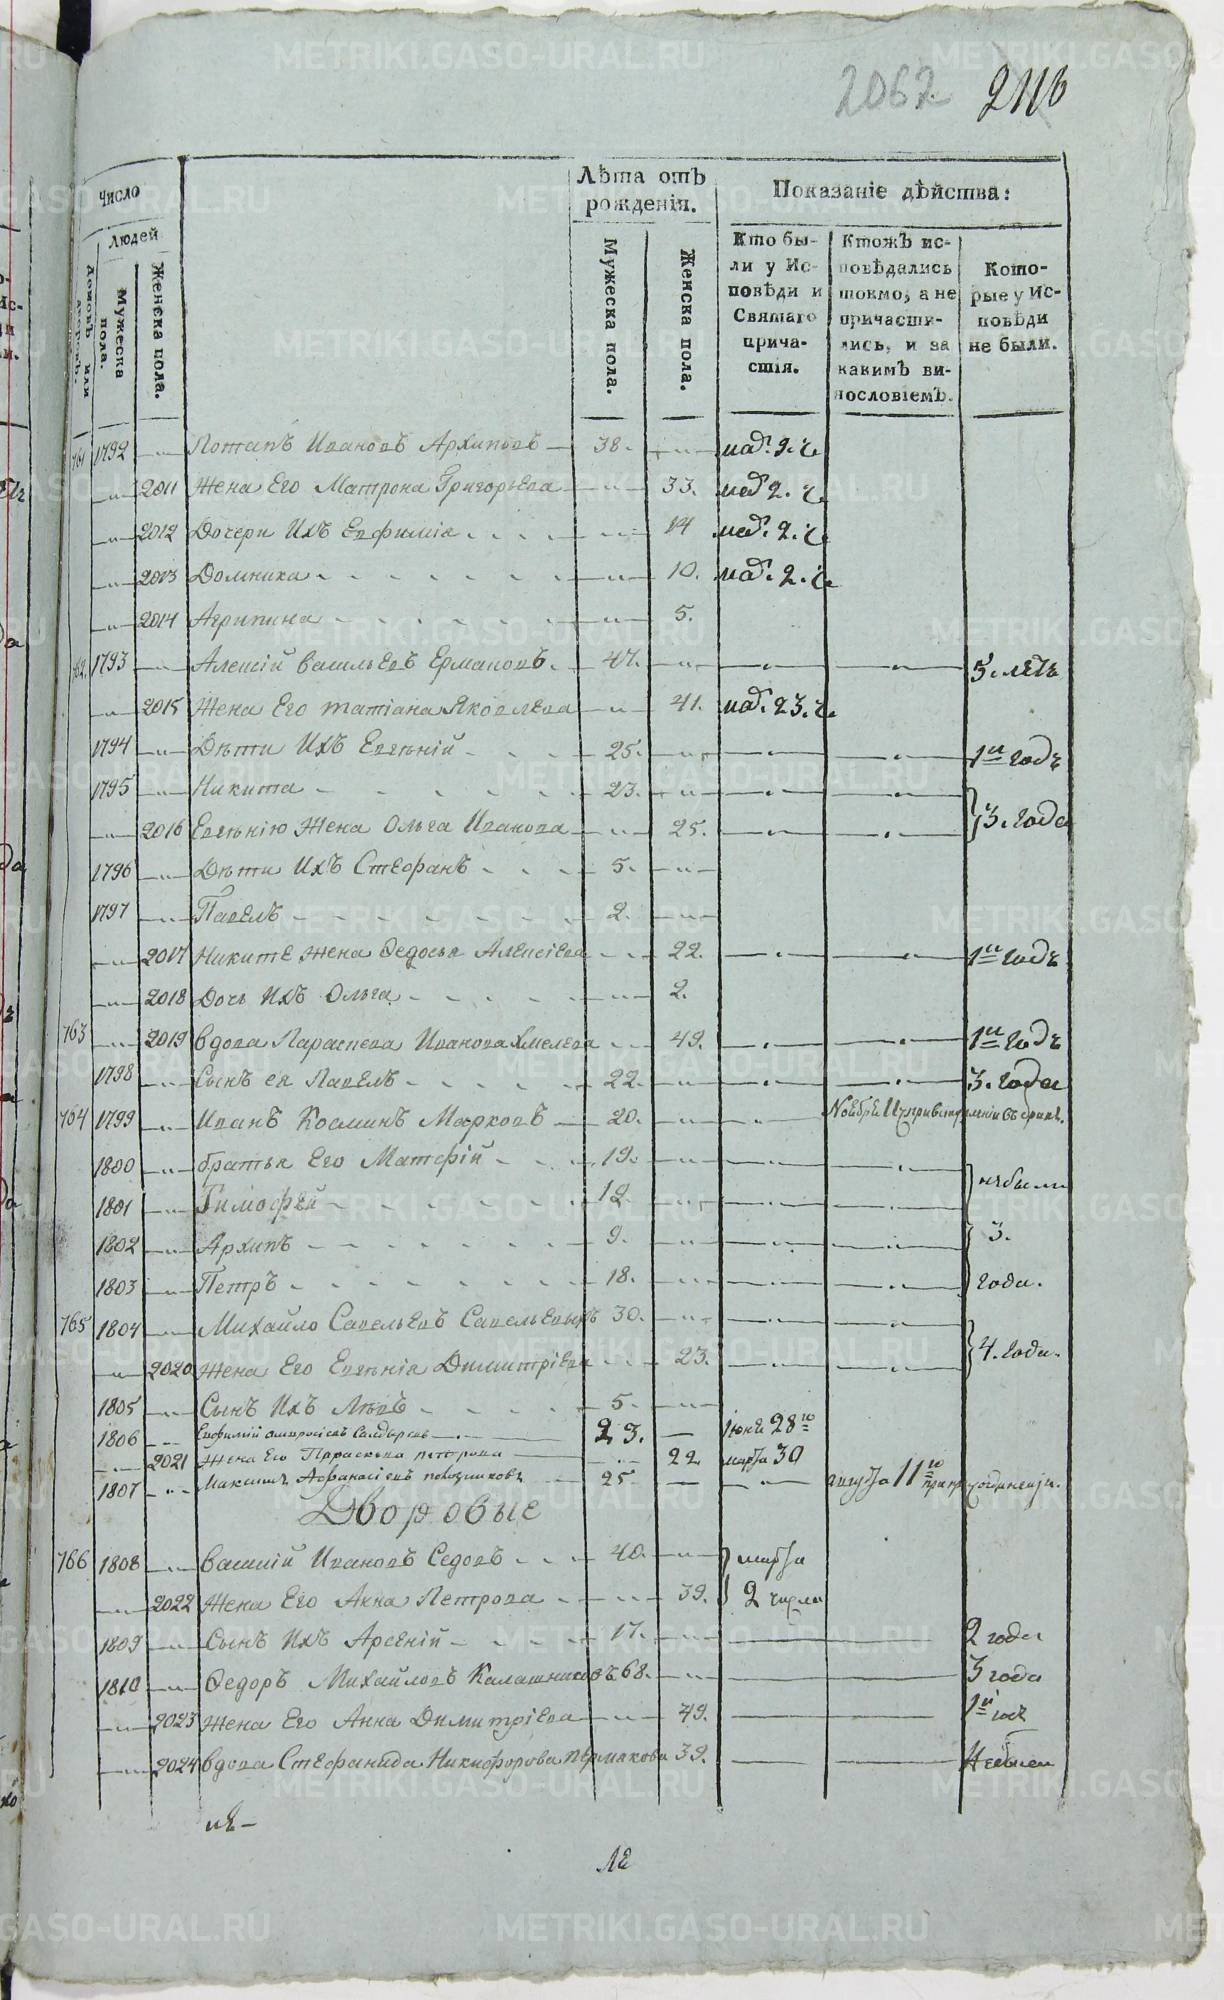 2062 2116
Число
Людей
Домовъ или дворовъ.
Мужеска пола.
Женска пола.
Лѣта отъ рожденія.
Мужеска пола.
Женска пола.
Показаніе дѣйства:
Кто были у Исповѣди и Святаго причастія.
Ктожъ исповѣдались токмо, а не причастились, и за какимъ винословіемъ.
Которые у Исповѣди не были.
761 1792 Потапъ Ивановъ Архиповъ 38. 2.
2011 Жена Его Матрона Григорьева 33. 2.
2012 Дочери Ихъ Евфимія 14 2.
2013 Домника 10. 2.
2014 Агрипина 5.
762. 1793 Алексій Васильевъ Ермаковъ. 47. 5. летъ
2015 Жена Его Татіана Яковлева 41. 23.
1794 Дѣти Ихъ Евгеній 25. 1й годъ
1795 Никита 23.
3. года
2016 Евгенію Жена Ольга Иванова 25.
1796 Дѣти Ихъ Стефанъ 5.
1797 Павелъ 2.
2017 Никите Жена Федосья Алексіева 22. 1й годъ
2018 Дочь Ихъ Ольга 2.
763 2019 Вдова Параскева Иванова Хмелева 49. 1й годъ
1798 Сынъ ея Павелъ 22. 3. года
764 1799 Иванъ Косминъ Марковъ 20. Ноебре
1800 братья Его Матфій 19.
небыли
1801 Тимофей 12.
1802 Архипъ 9. 3.
1803 Петръ 18. года.
765 1804 Михайло Савельевъ Савельевыхъ 30.
4. года.
2020 Жена Его Евгенія Димитріева 23.
1805 Сынъ Ихъ Левъ 5.
1806 23. Іюне 28го
2021 Жена Его Параскева Петрова 22 марта 30
1807 Максимъ Афанасіевъ 25 августа 11го
Дворовые
766 1808 Василій Ивановъ Седовъ 40. марта
2022 Жена Его Анна Петрова 39. 2 числа
1809 Сынъ Ихъ Арсеній 17. 2 года
1810 Федоръ Михайловъ Калашниковъ 68. 3 года
2023 Жена Его Анна Димитріева 49. 1й годъ
2024 Вдова Стефанида Никифорова Пермякова 39. Небыла